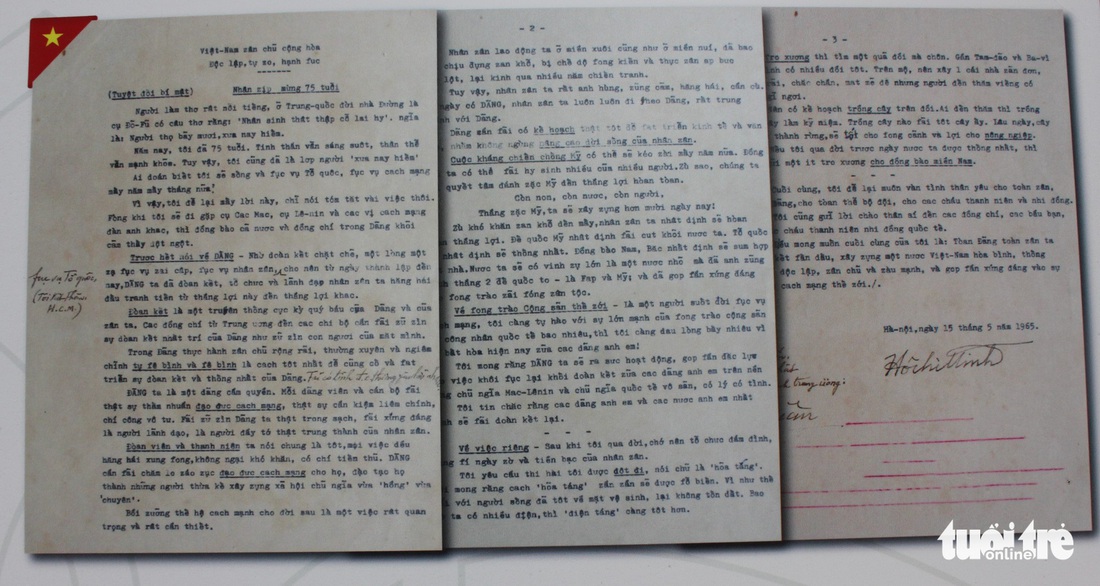 Việt-Nam zân chủ cộng hòa
Độc lập, tự zo, hạnh fuc
(Tuyệt đối bí mật) Nhân zịp mừng 75 tuổi
Người làm thơ rất nổi tiếng, ở Trung-quốc đời nhà Đường là
cụ Đỗ-Fủ có câu thơ rằng: 'Nhân sinh thất thập cổ lai hy'. nghĩa
là: Người thọ bảy mươi, xưa nay hiếm.
Năm nay, tôi đã 75 tuổi. Tinh thần vẫn sáng suốt, thân thể
vẫn mạnh khỏe. Tuy vậy, tôi cũng đã là lớp người 'xưa nay hiếm'
Ai đoán biết tôi sẽ sống và fục vụ Tổ quốc, fục vụ cách mạng
mấy năm mấy tháng nữa?
Vì vậy, tôi để lại mấy lời này, chỉ nói tóm tắt vài việc thôi.
Fòng khi tôi sẽ đi gặp cụ Cac Mac, cụ Lê-nin và các vị cách mạng
đàn anh khác, thì đồng bào cả nước và đồng chí trong Đảng khỏi
cảm thấy đột ngột.
Trước hết nói về ĐẢNG - Nhờ đoàn kết chặt chẽ, một lòng một
zạ fục vụ zai cấp, fục vụ nhân zân, cho nên từ ngày thành lập đến
nay, ĐẢNG ta đã đoàn kết, tổ chức và lãnh đạo nhân zân ta hăng hái
đấu tranh tiến từ thắng lợi này đến thắng lợi khác.
fục vụ Tổ quốc,
H.C.M)
Đoàn kết là một truyền thống cực kỳ quý báu của Đảng và của
zân ta. Các đồng chí từ Trung ương đến các chi bộ cần fải zữ zìn
sự đoàn kết nhất trí của Đảng như zữ zìn con ngươi của mắt mình.
Trong Đảng thực hành zân chủ rộng rãi, thường xuyên và nghiêm
chỉnh tự fê bình và fê bình là cách tốt nhất để củng cố và fát
triển sự đoàn kết và thống nhất của Đảng. Fải có tình đ.c thương yêu lẫn nhau
ĐẢNG ta là một đảng cầm quyền. Mỗi đảng viên và cán bộ fải
thật sự thấm nhuần đạo đức cách mạng, thật sự cần kiệm liêm chính,
chí công vô tư. Fải zữ zìn Đảng ta thật trong sạch, fải xứng đáng
là người lãnh đạo, là người đầy tớ thật trung thành của nhân zân.
Đoàn viên và thanh niên ta nói chung là tốt, mọi việc đều
hăng hái xung fong, không ngại khó khăn, có chí tiến thủ. ĐẢNG
cần fải chăm lo záo zục đạo đức cách mạng cho họ, đào tạo họ
thành những người thừa kế xây zựng xã hội chủ nghĩa vừa 'hồng' vừa
'chuyên'.
Bồi zưỡng thế hệ cách mạnh cho đời sau là một việc rất quan
trọng và rất cần thiết.
- 2 -
Nhân zân lao động ta ở miền xuôi cũng như ở miền núi, đã bao
chịu đựng zan khổ, bị chế độ fong kiến và thực zân áp bức
lột, lại kinh qua nhiều năm chiến tranh.
Tuy vậy, nhân zân ta rất anh hùng, zũng cảm, hăng hái, cần cù.
ngày có ĐẢNG, nhân zân ta luôn luôn đi theo Đảng, rất trung
nh với Đảng.
Đảng zần fải có kế hoạch thật tốt để fát triển kinh tế và văn
nhằm không ngừng nâng cao đời sống của nhân zân.
Cuộc kháng chiến chống Mỹ có thể sẽ kéo zài mấy năm nữa. Đồng
ta có thể fải hy sinh nhiều của nhiều người. Zù sao, chúng ta
quyết tâm đánh zặc Mỹ đến thắng lợi hoàn toàn.
Còn non, còn nước, còn người,
Thắng zặc Mỹ, ta sẽ xây zựng hơn mười ngày nay!
Zù khó khăn zan khổ đến mấy, nhân zân ta nhất định sẽ hoàn
n thắng lợi. Đế quốc Mỹ nhất định fải cút khỏi nước ta. Tổ quốc
nhất định sẽ thống nhất. Đồng bào Nam, Bắc nhất định sẽ sum họp
nhà. Nước ta sẽ có vinh zự lớn là một nước nhỏ mà đã anh zũng
h thắng 2 đế quốc to - là Fap và Mỹ; và đã góp fần xứng đáng
fong trào zải fóng zân tộc.
Về fong trào Cộng sản thế zới - là một người suốt đời fục vụ
h mạng, tôi càng tự hào với sự lớn mạnh của fong trào cộng sản
công nhân quốc tế bao nhiêu, thì tôi càng đau lòng bấy nhiêu vì
bất hòa hiện nay zữa các đảng anh em!
Tôi mong rằng ĐẢNG ta sẽ ra sức hoạt động, góp fần đắc lực
việc khôi fục lại khối đoàn kết zữa các đảng anh em trên nền
g chủ nghĩa Mac-Lênin và chủ nghĩa quốc tế vô sản, có lý có tình.
Tôi tin chắc rằng các đảng anh em và các nước anh em nhất
nh sẽ fải đoàn kết lại.
- - -
Về việc riêng - Sau khi tôi qua đời, chớ nên tổ chức đám đình,
g fí ngày zờ và tiền bạc của nhân zân.
Tôi yêu cầu thi hài tôi được đốt đi, nói chữ là 'hỏa táng'.
mong rằng cách 'hỏa táng' zần zần sẽ được fổ biến. Vì như thế
với người sống đã tốt về mặt vệ sinh, lại không tốn đất. Bao
ta có nhiều điện, thì 'điện táng' càng tốt hơn.
- 3 -
tro xương thì tìm một quả đồi mà chôn. Gần Tam-đảo và Ba-vì
như có nhiều đồi tốt. Trên mộ, nên xây 1 cái nhà zản đơn,
rãi, chắc chắn, mát zẻ để những người đến thăm viếng có
hỉ ngơi.
Nên có kế hoạch trồng cây trên đồi. Ai đến thăm thì trồng
ây làm kỷ niệm. Trồng cây nào fải tốt cây ấy. Lâu ngày, cây
thành rừng, sẽ tốt cho fong cảnh và lợi cho nông ngiệp.
Nếu tôi qua đời trước ngày nước ta được thống nhất, thì
ởi một ít tro xương cho đồng bào miền Nam.
- - -
Cuối cùng, tôi để lại muôn vàn tình thân yêu cho toàn zân,
Đảng, cho toàn thể bộ đội, cho các cháu thanh niên và nhi đồng.
Tôi cũng gửi lời chào thân ái đến các đồng chí, các bầu bạn,
cháu thanh niên nhi đồng quốc tế.
Điều mong muốn cuối cùng của tôi là: Toàn Đảng toàn zân ta
kết fấn đấu, xây zựng một nước Việt-Nam hòa bình, thống
độc lập, zân chủ và zàu mạnh, và góp fần xứng đáng vào sự
cách mạng thế zới./.
Hà-nội, ngày 15 tháng 5 năm 1965.
Hồ Chí Minh
trung ương:
tuổi trẻ
online